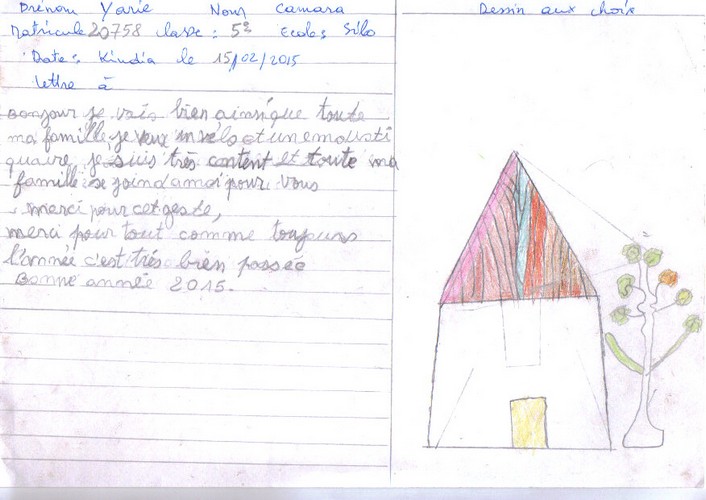 Prénom Yarie Nom Camara
Matricule 20758 classe : 5è Ecoles Silo
Date : Kindia le 15/02/2015
lettre à
Bonjour je vais bien ainsi que toute
ma famille, je veux un vélo et un emouati
quaire, je suis très content et toute ma
famille se joind a moi pour vous
merci pour cet geste,
merci pour tout comme toujours
l'année c'est très bien passée
Bonne année 2015.
Dessin aux choix